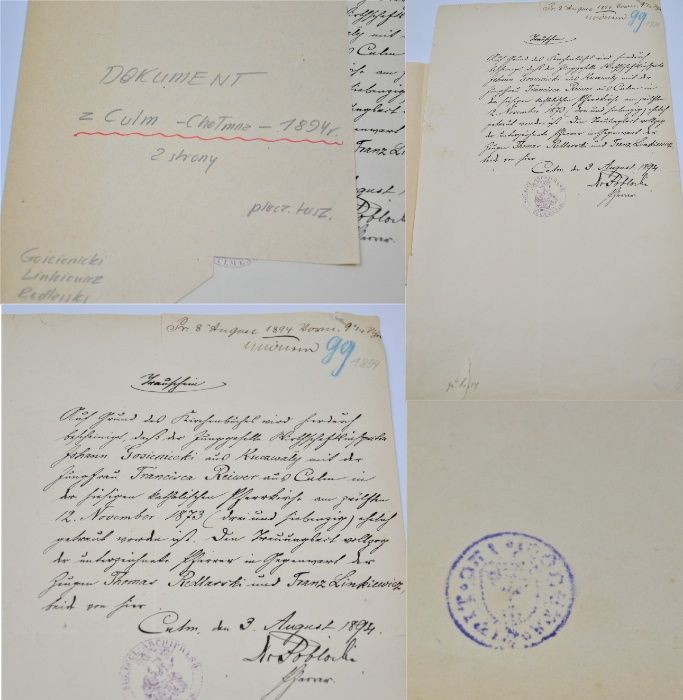 DOKUMENT
z Culm - Chełmna - 1894 r.
2 strony
piecz. tusz.
Gościenicki
Linkiewicz
Redlarski
Pr. 8 August 1894 Vorm.
99
1894
Trauschein
Auf Grund des Kirchenbuches wird hierdurch
bescheinigt, daß der Junggeselle Wirthschaftsinspektor
Johann Gosienicki aus Kucawaly mit der
Jungfrau Francisca Reiwer aus Culm in
der hiesigen katholischen Pfarrkirche am zwölften
12. November 1873 (drei und siebenzig) ehelich
getraut worden ist. Den Trauungsact vollzog
der unterzeichnete Pfarrer in Gegenwart der
Zeugen Thomas Redlarski und Franz Linkiewicz,
beide von hier.
Culm, den 3. August 1894.
Dr Poblocki
Pfarrer.
Pr. 8 August 1894 Vorm.
99
1894
Trauschein
Auf Grund des Kirchenbuches wird hierdurch
bescheinigt, daß der Junggeselle Wirthschaftsinspektor
Johann Gosienicki aus Kucawaly mit der
Jungfrau Francisca Reiwer aus Culm in
der hiesigen katholischen Pfarrkirche am zwölften
12. November 1873 (drei und siebenzig) ehelich
getraut worden ist. Den Trauungsact vollzog
der unterzeichnete Pfarrer in Gegenwart der
Zeugen Thomas Redlarski und Franz Linkiewicz,
beide von hier.
Culm, den 3. August 1894.
Dr Poblocki
Pfarrer.